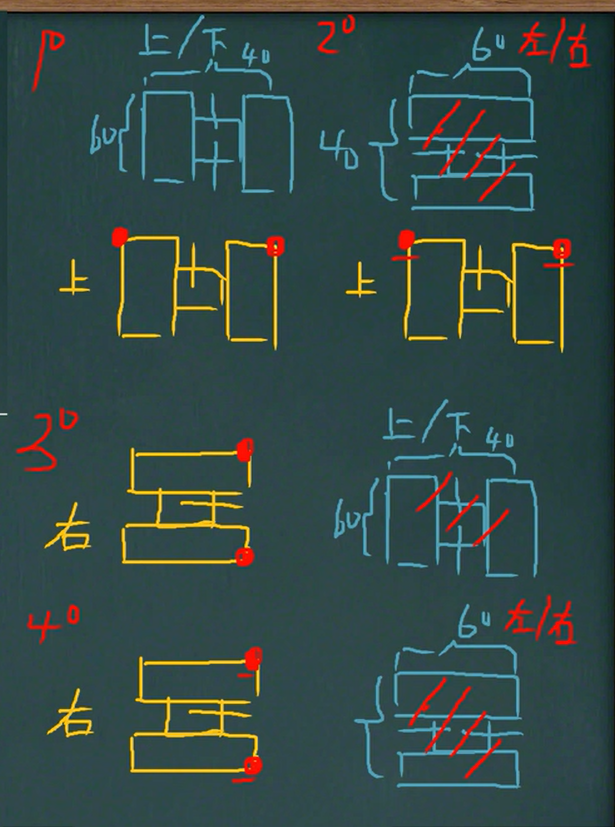 1° 上/下 40 2° 60 左/右
60 40
上 上
3° 上/下 40
右 60
4° 60 左/右
右